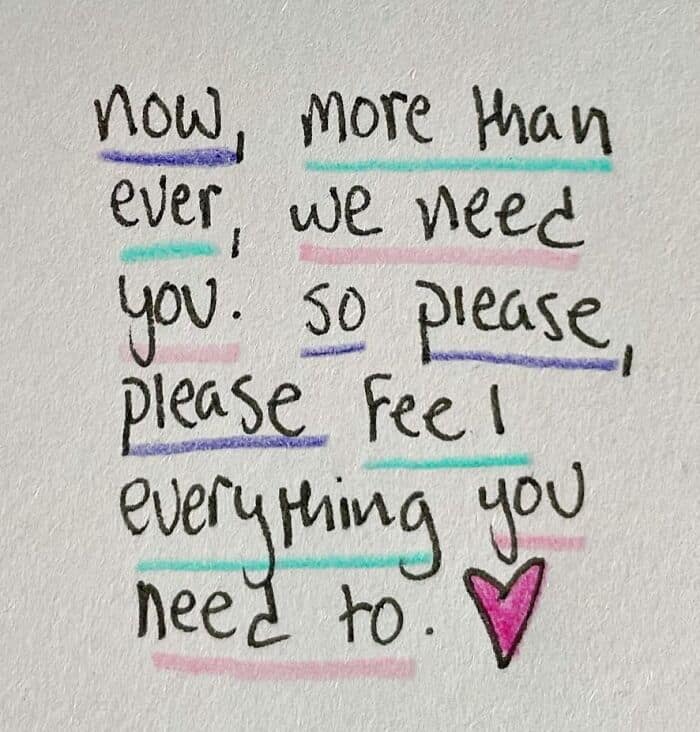 now, more than
ever, we need
you. so please,
please feel
everything you
need to.